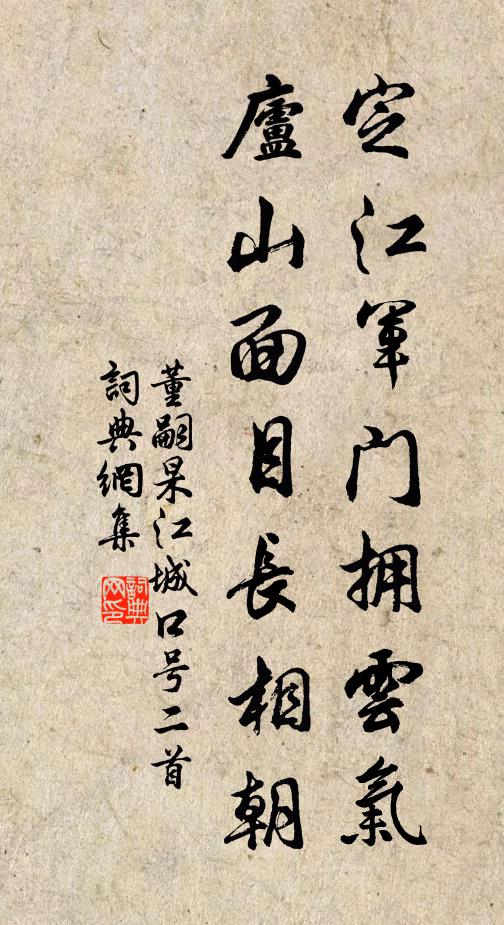 定江軍门拥雲氣
廬山面目長相朝
董嗣杲江城口号二首
詞典網集
詞典
网印